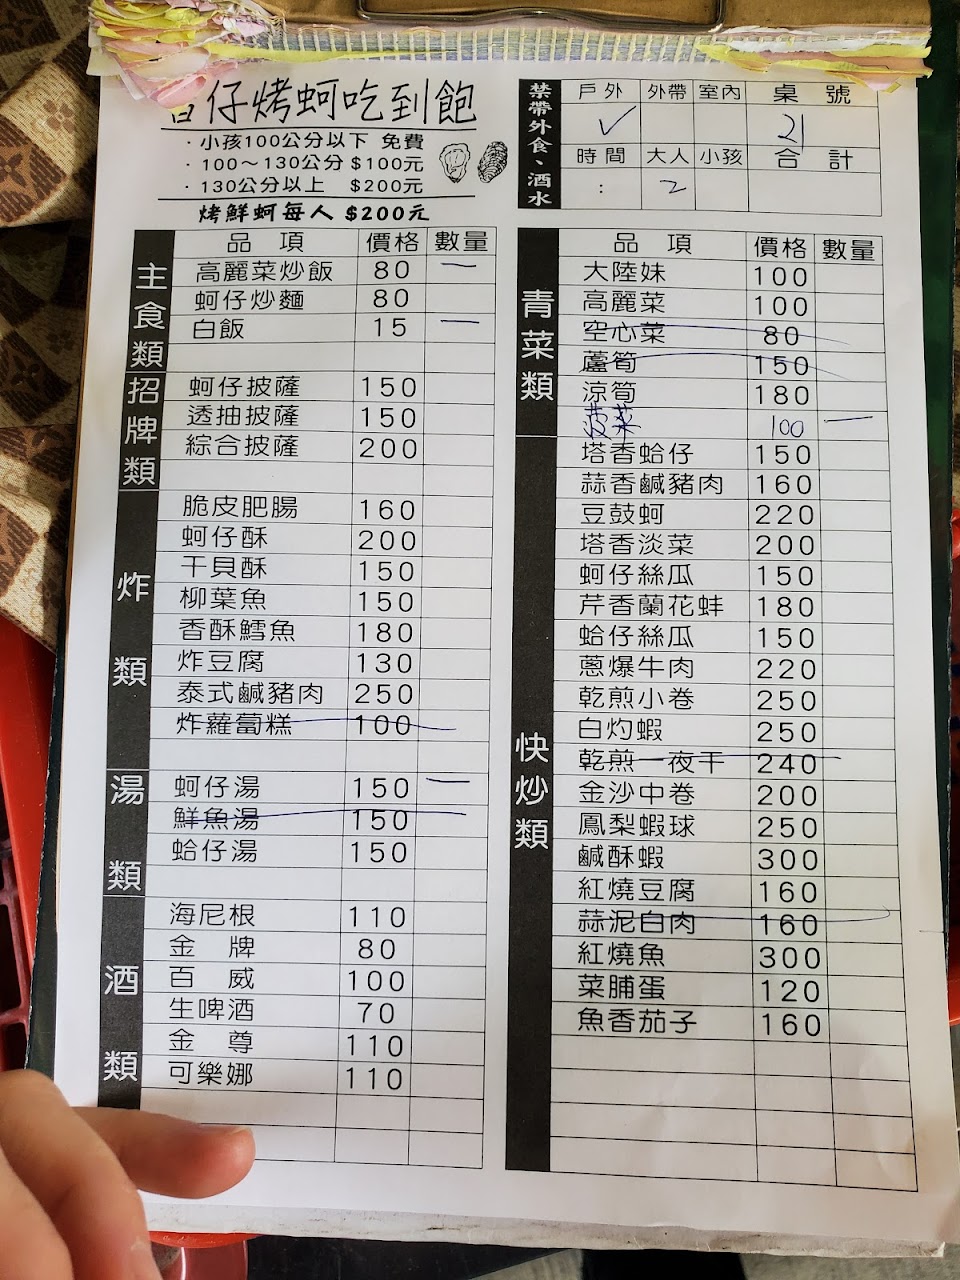 仔烤蚵吃到飽
·小孩100公分以下 免費
·100～130公分 $100元
·130公分以上 $200元
烤鮮蚵每人 $200元
禁帶外食、酒水
戶外 外帶 室內 桌號
✓ 21
時間 大人 小孩 合計
: 2
品項 價格 數量
主食類
高麗菜炒飯 80 一
蚵仔炒麵 80
白飯 15 一
招牌類
蚵仔披薩 150
透抽披薩 150
綜合披薩 200
炸類
脆皮肥腸 160
蚵仔酥 200
干貝酥 150
柳葉魚 150
香酥鱈魚 180
炸豆腐 130
泰式鹹豬肉 250
炸蘿蔔糕 100
湯類
蚵仔湯 150 一
鮮魚湯 150
蛤仔湯 150
酒類
海尼根 110
金牌 80
百威 100
生啤酒 70
金尊 110
可樂娜 110
品項 價格 數量
青菜類
大陸妹 100
高麗菜 100
空心菜 80
蘆筍 150
涼筍 180
菠菜 100 一
快炒類
塔香蛤仔 150
蒜香鹹豬肉 160
豆鼓蚵 220
塔香淡菜 200
蚵仔絲瓜 150
芹香蘭花蚌 180
蛤仔絲瓜 150
蔥爆牛肉 220
乾煎小卷 250
白灼蝦 250
乾煎一夜干 240
金沙中卷 200
鳳梨蝦球 250
鹹酥蝦 300
紅燒豆腐 160
蒜泥白肉 160
紅燒魚 300
菜脯蛋 120
魚香茄子 160